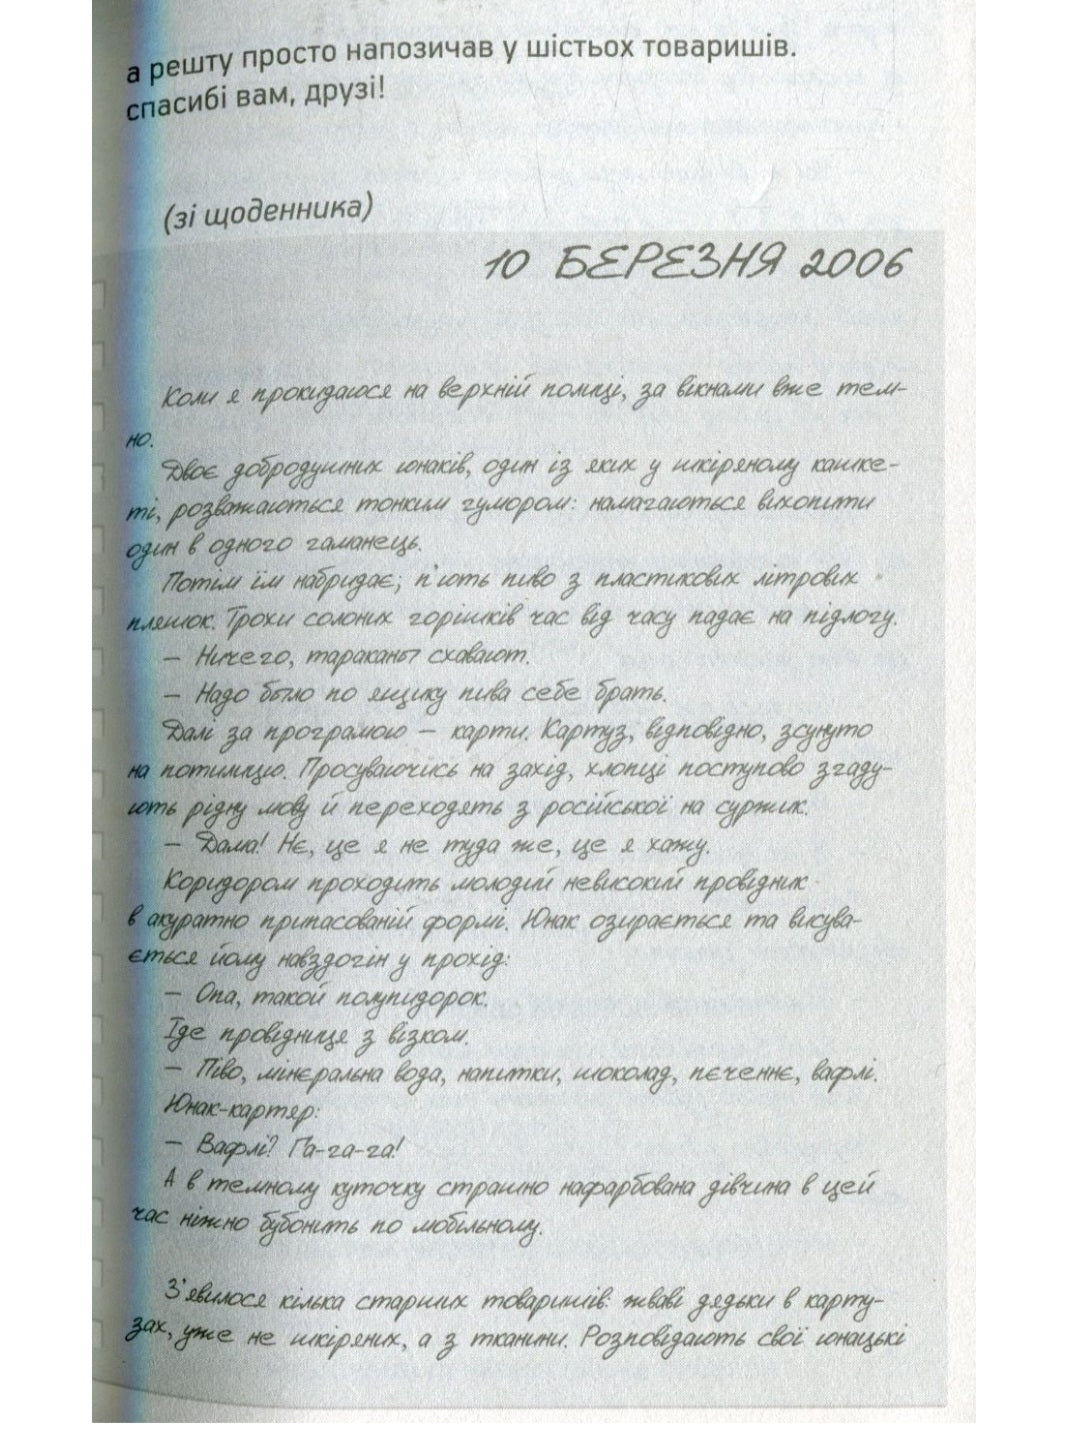 а решту просто напозичав у шістьох товаришів.
спасибі вам, друзі!
(зі щоденника)
10 БЕРЕЗНЯ 2006
Коли я прокидаюся на верхній полиці, за вікнами вже тем-
но.
Двоє добродушних юнаків, один із яких у шкіряному кашке-
ті, розважаються тонким гумором: намагаються вихопити
один в одного гаманець.
Потім їм набридає; п'ють пиво з пластикових літрових
пляшок. Трохи солоних горішків час від часу падає на підлогу.
– Ничего, тараканы схавают.
– Надо было по ящику пива себе брать.
Далі за програмою – карти. Картуз, відповідно, зсунуто
на потилицю. Просуваючись на захід, хлопці поступово згаду-
ють рідну мову й переходять з російської на суржик.
– Дама! Нє, це я не туда же, це я хажу.
Коридором проходить молодий невисокий провідник
в акуратно припасованій формі. Юнак озирається та висува-
ється йому навздогін у прохід:
– Опа, такой полупидорок.
Їде провідниця з візком.
– Піво, мінєральна вода, напітки, шоколад, пєченнє, вафлі.
Юнак-картяр:
– Вафлі? Га-га-га!
А в темному куточку страшно нафарбована дівчина в цей
час ніжно бубонить по мобільному.
З'явилося кілька старших товаришів: жваві дядьки в карту-
зах, уже не шкіряних, а з тканини. Розповідають свої юнацькі